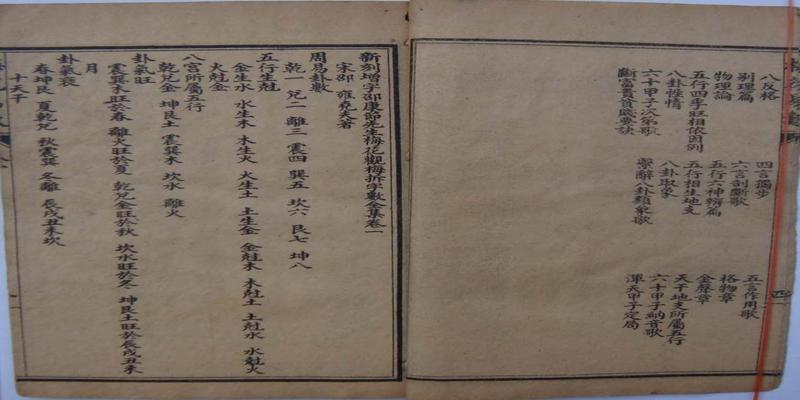 八反格 四言獨步 五言作用歌
別理篇 六言剖斷歌 格物章
物理論 五行六神辨篇 金聲章
五行四季旺相休囚例 五行相生地支 天干地支所屬五行
八卦性情 八卦取象 六十甲子納音歌
六十甲子次第歌 繫辭八卦類象歌 渾天甲子定局
斷富貴貧賤要訣
新刻增字邵康節先生梅花觀梅拆字數全集卷一
宋邵 雍堯夫著
周易卦數
乾一 兌二 離三 震四 巽五 坎六 艮七 坤八
五行生尅
金生水 水生木 木生火 火生土 土生金 金尅木 木尅土 土尅水 水尅火
火尅金
八宮所屬五行
乾兌金 坤艮土 震巽木 坎水 離火
卦氣旺
震巽木旺於春 離火旺於夏 乾兌金旺於秋 坎水旺於冬 坤艮土旺於辰戌丑未
月
卦氣衰
春坤艮 夏乾兌 秋震巽 冬離 辰戌丑未坎
十天干